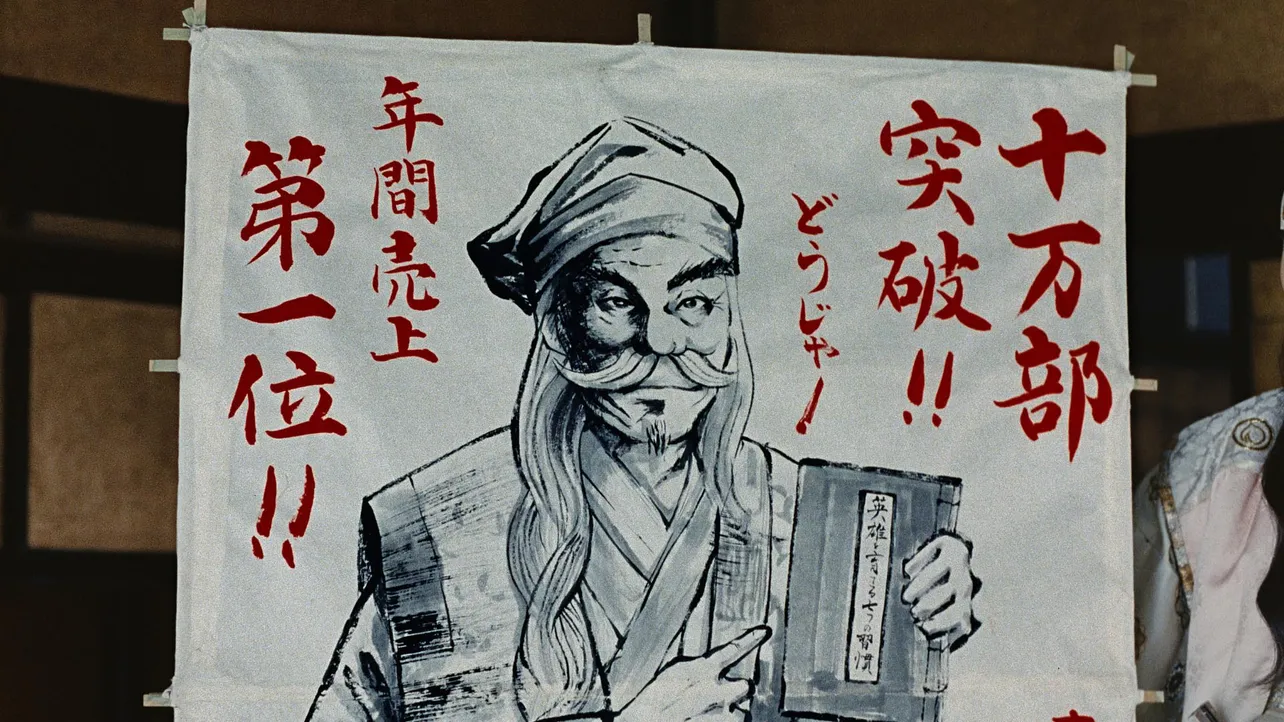 十万部
突破!!
どうじゃ!
年間売上
第一位!!
英雄を育てる七つの習慣